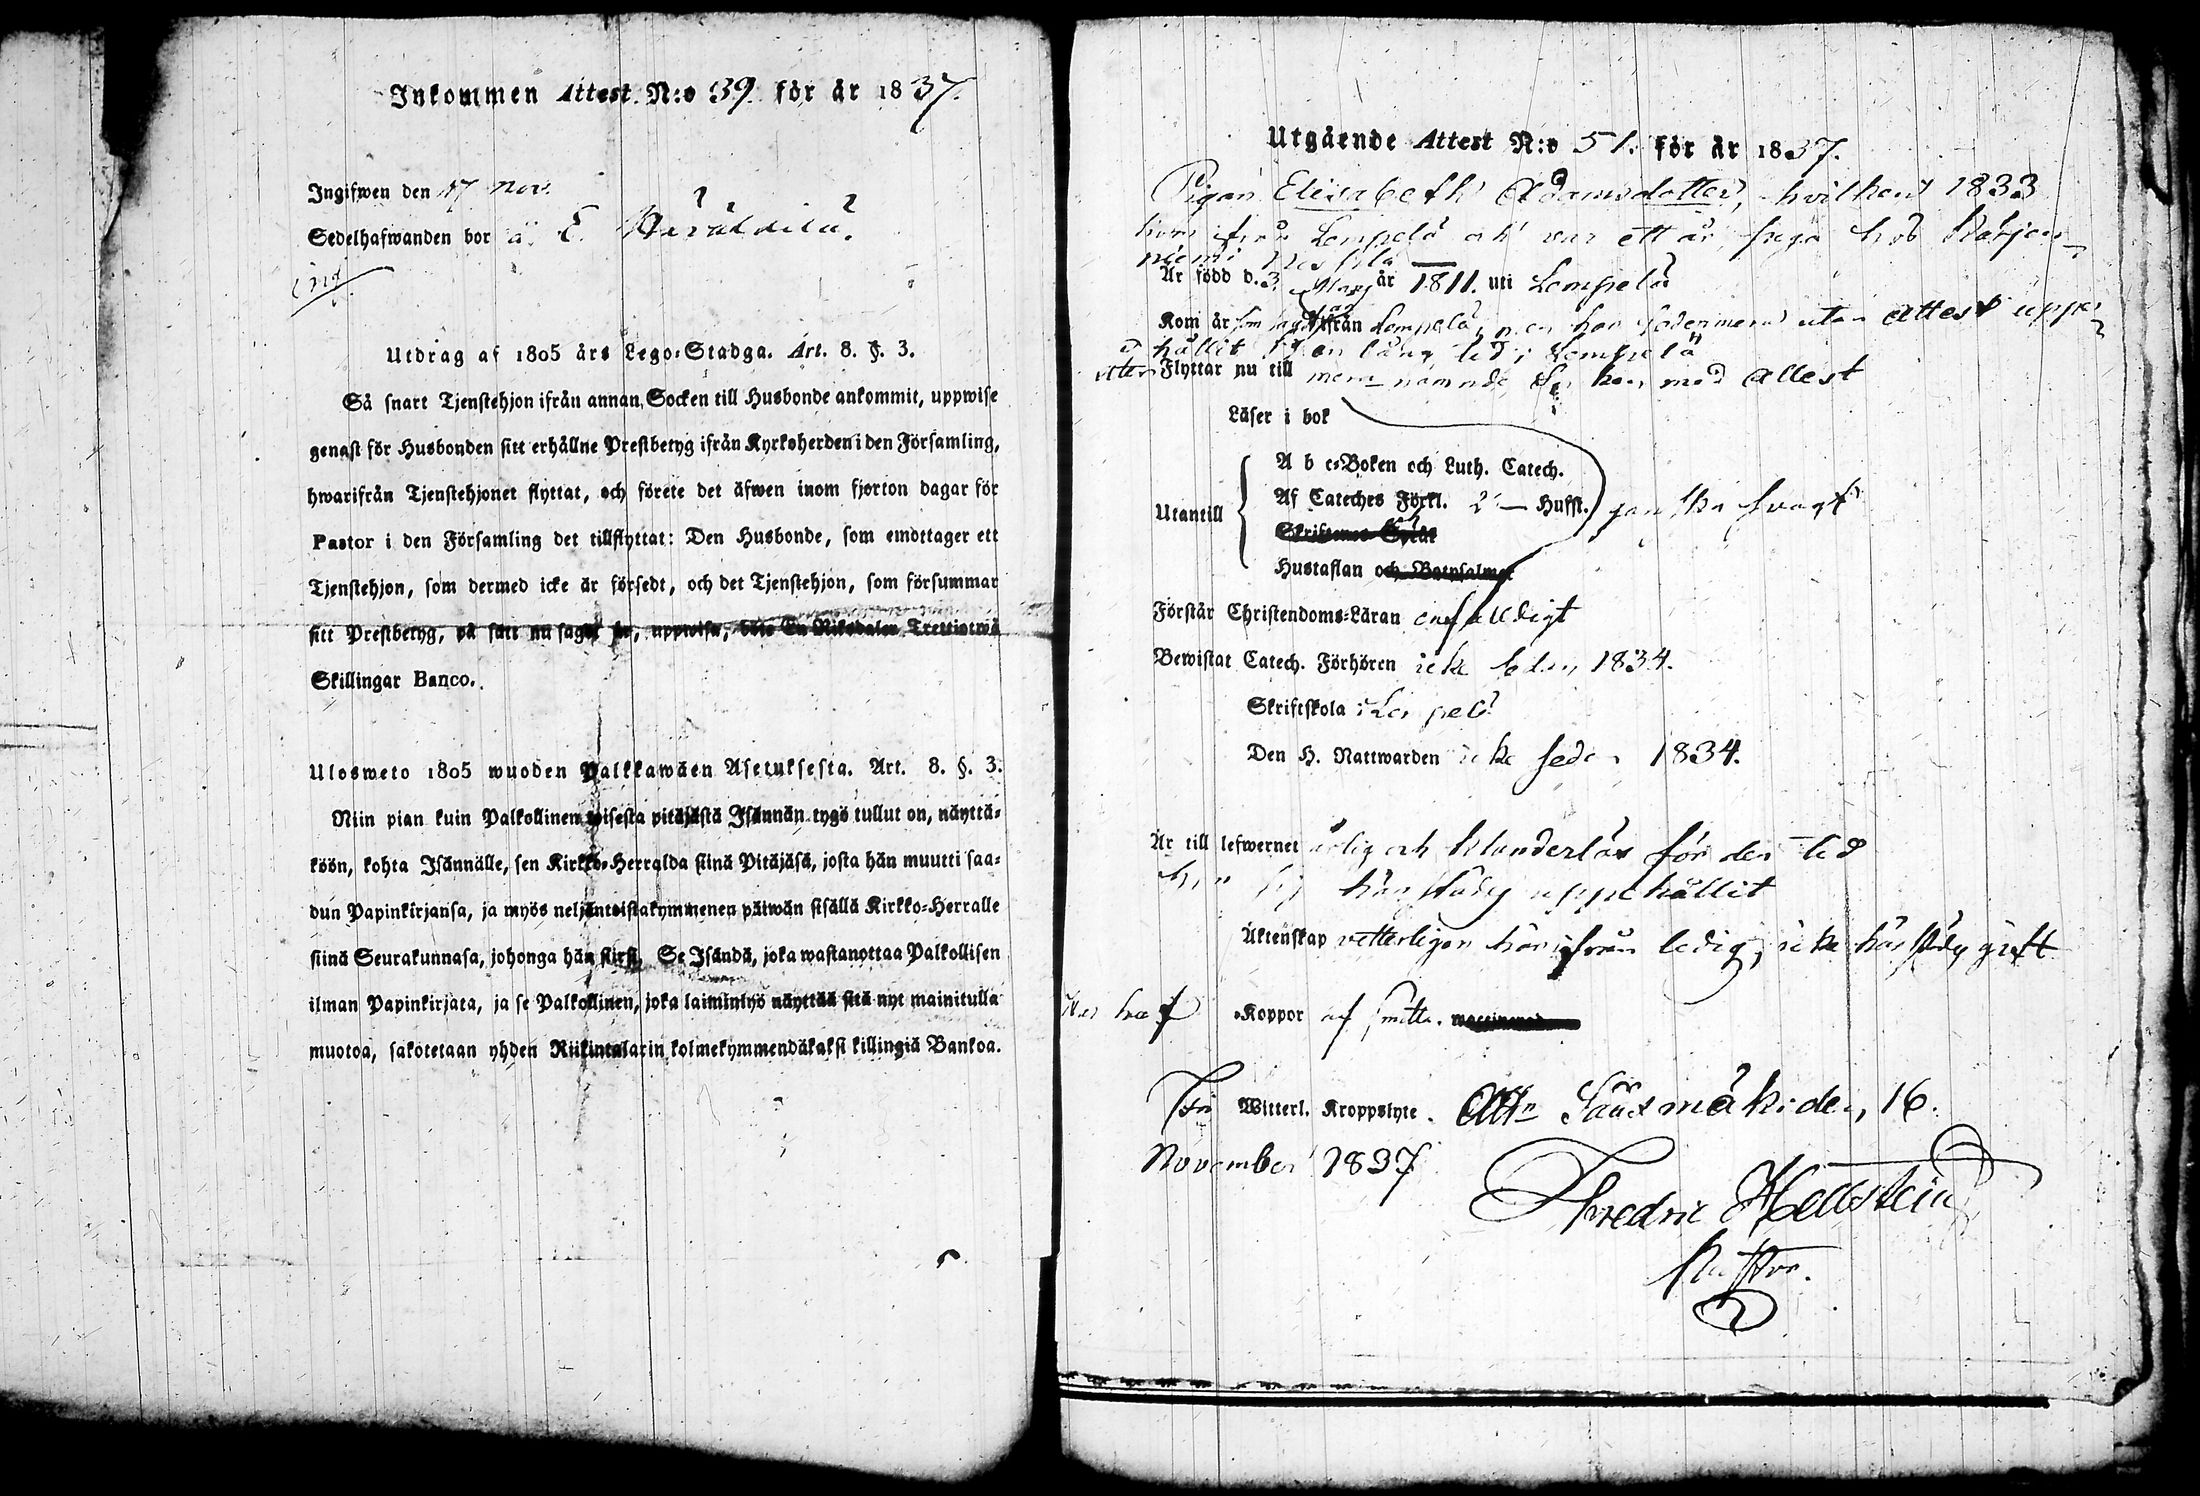 Inkommen Attest. N:o 39. för år 1837.
Ingifwen den 17 Nov.
Sedelhafwanden bor å E.
Utdrag af 1805 års Lego-Stadga. Art. 8. §. 3.
Så snart Tjenstehjon ifrån annan Socken till Husbonde ankommit, uppwise
genast för Husbonden sitt erhållne Prestbetyg ifrån Kyrkoherden i den Församling,
hwarifrån Tjenstehjonet flyttat, och förete det äfwen inom fjorton dagar för
Pastor i den Församling det tillflyttat: Den Husbonde, som emottager ett
Tjenstehjon, som dermed icke är försedt, och det Tjenstehjon, som försummar
sitt Prestbetyg, på sätt nu sagdt är, uppwisa, böte En Riksdaler Trettiotwå
Skillingar Banco.
Ulosweto 1805 wuoden Palkkawäen Asetuksesta. Art. 8. §. 3.
Niin pian kuin Palkollinen toisesta pitäjästä Isännän tygö tullut on, näyttä-
köön, kohta Isännälle, sen Kirkko-Herralda siinä Pitäjäsä, josta hän muutti saa-
dun Papinkirjansa, ja myös neljäntoistakymmenen päiwän sisällä Kirkko-Herralle
siinä Seurakunnasa, johonga hän siirsi. Se Isändä, joka wastanottaa Palkollisen
ilman Papinkirjata, ja se Palkollinen, joka laiminlyö näyttää sitä nyt mainitulla
muotoa, sakotetaan yhden Riikintalarin kolmekymmendäkaksi killingiä Bankoa.
Utgående Attest N:o 51. för år 1837.
Pigan Elisabeth Adamsdotter, hvilken 1833
kom från Lempelä och var ett år piga hos
Är född d. 3 Maj år 1811. uti Lempelä
Kom år som sagdt ifrån Lempelä, men har sedermera utan attest uppe
hållit sig en lång tid i Lempelä
Flyttar nu till nämnde med attest
Läser i bok
A b c-Boken och Luth. Catech.
Utantill Af Cateches Förkl. 2 — Hufst. ganska svagt
Skriftenes Språk
Hustaflan och Botpsalmer
Förstår Christendoms-Läran enfalldigt
Bewistat Catech. Förhören icke sedan 1834.
Skriftskola i Lempelä
Den H. Nattwarden icke sedan 1834.
Är till lefwernet ärlig och klanderlös för den tid
hon sig härstädes uppehållit
Äktenskap vetterligen härifrån ledig, icke härstädes gift
Har haf Koppor af smitta. waccinerad
Fri Witterl. Kroppslyte. Att: Sääxmäki den 16.
November 1837
Fredric Hellstein
Pastor.